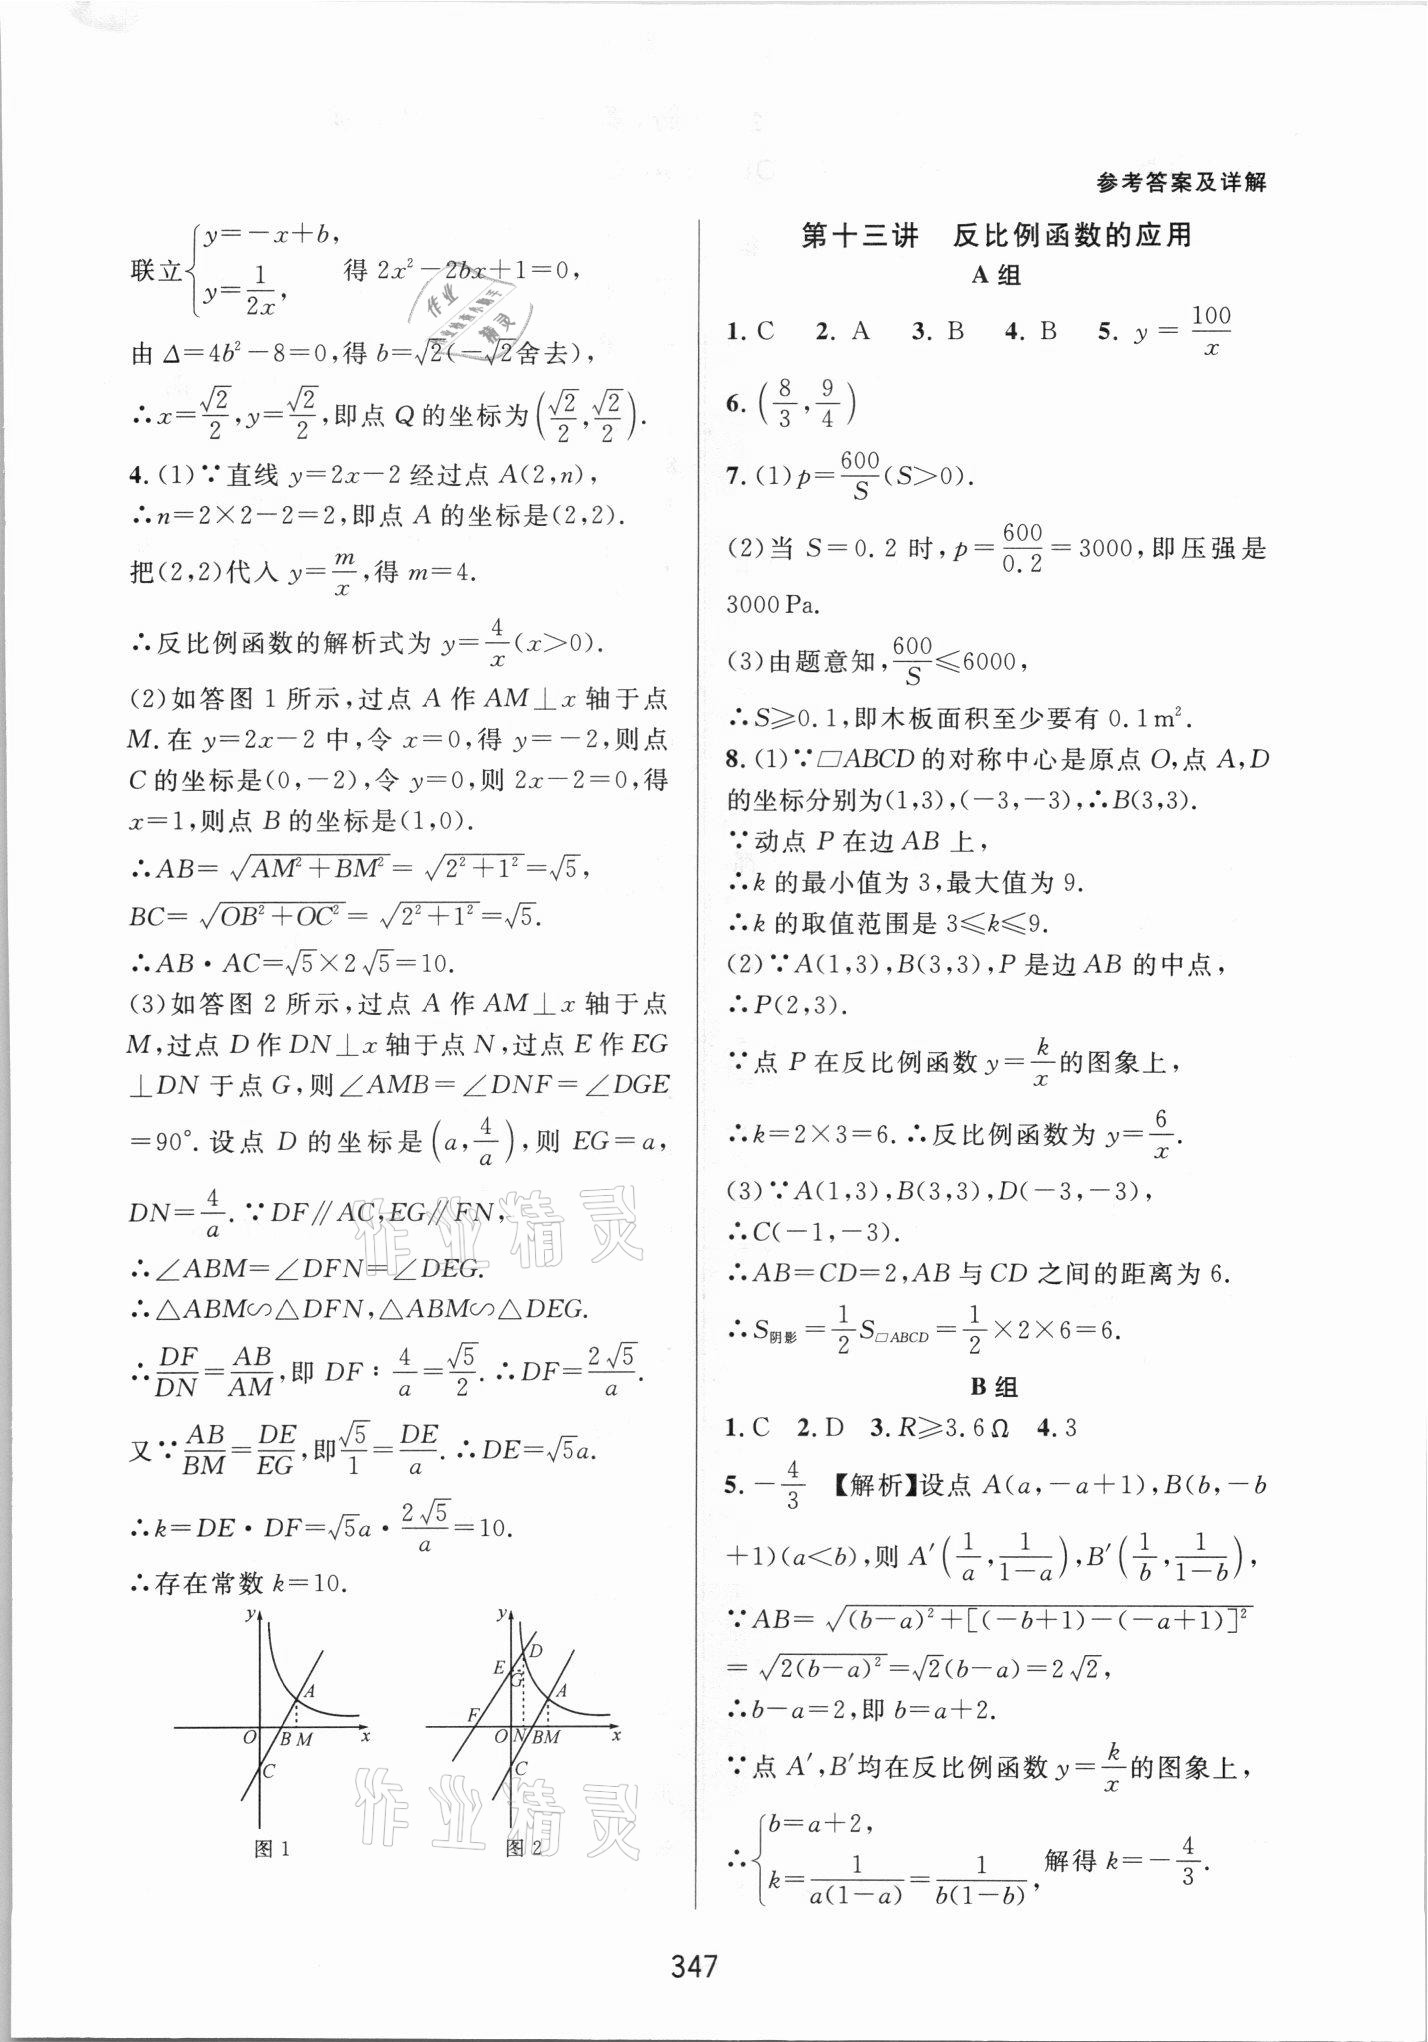 参考答案及详解
联立{y=-x+b, y=1/(2x), 得 2x²-2bx+1=0,
由 Δ=4b²-8=0,得 b=√2(-√2舍去),
∴x=√2/2,y=√2/2,即点 Q 的坐标为(√2/2,√2/2).
4.(1)∵直线 y=2x-2 经过点 A(2,n),
∴n=2×2-2=2,即点 A 的坐标是(2,2).
把(2,2)代入 y=m/x,得 m=4.
∴反比例函数的解析式为 y=4/x(x>0).
(2)如答图 1 所示,过点 A 作 AM⊥x 轴于点
M.在 y=2x-2 中,令 x=0,得 y=-2,则点
C 的坐标是(0,-2),令 y=0,则 2x-2=0,得
x=1,则点 B 的坐标是(1,0).
∴AB=√(AM²+BM²)=√(2²+1²)=√5,
BC=√(OB²+OC²)=√(2²+1²)=√5.
∴AB·AC=√5×2√5=10.
(3)如答图 2 所示,过点 A 作 AM⊥x 轴于点
M,过点 D 作 DN⊥x 轴于点 N,过点 E 作 EG
⊥DN 于点 G,则∠AMB=∠DNF=∠DGE
=90°.设点 D 的坐标是(a,4/a),则 EG=a,
DN=4/a.∵DF∥AC,EG∥FN,
∴∠ABM=∠DFN=∠DEG.
∴△ABM∽△DFN,△ABM∽△DEG.
∴DF/DN=AB/AM,即 DF:4/a=√5/2.∴DF=2√5/a.
又∵AB/BM=DE/EG,即√5/1=DE/a.∴DE=√5a.
∴k=DE·DF=√5a·2√5/a=10.
∴存在常数 k=10.
y
A
O B M x
C
图 1
y
D
E
G
A
F
O N B M x
C
图 2
第十三讲 反比例函数的应用
A 组
1. C 2. A 3. B 4. B 5. y=100/x
6. (8/3,9/4)
7.(1)p=600/S(S>0).
(2)当 S=0.2 时,p=600/0.2=3000,即压强是
3000 Pa.
(3)由题意知,600/S≤6000,
∴S≥0.1,即木板面积至少要有 0.1 m².
8.(1)∵□ABCD 的对称中心是原点 O,点 A,D
的坐标分别为(1,3),(-3,-3),∴B(3,3).
∵动点 P 在边 AB 上,
∴k 的最小值为 3,最大值为 9.
∴k 的取值范围是 3≤k≤9.
(2)∵A(1,3),B(3,3),P 是边 AB 的中点,
∴P(2,3).
∵点 P 在反比例函数 y=k/x的图象上,
∴k=2×3=6.∴反比例函数为 y=6/x.
(3)∵A(1,3),B(3,3),D(-3,-3),
∴C(-1,-3).
∴AB=CD=2,AB 与 CD 之间的距离为 6.
∴S阴影=1/2S□ABCD=1/2×2×6=6.
B 组
1. C 2. D 3. R≥3.6 Ω 4. 3
5. -4/3 【解析】设点 A(a,-a+1),B(b,-b
+1)(a<b),则 A′(1/a,1/(1-a)),B′(1/b,1/(1-b)),
∵AB=√((b-a)²+[(-b+1)-(-a+1)]²)
=√(2(b-a)²)=√2(b-a)=2√2,
∴b-a=2,即 b=a+2.
∵点 A′,B′均在反比例函数 y=k/x的图象上,
∴{b=a+2, k=1/(a(1-a))=1/(b(1-b)), 解得 k=-4/3.
347
作业精灵
作业精灵
作业精灵